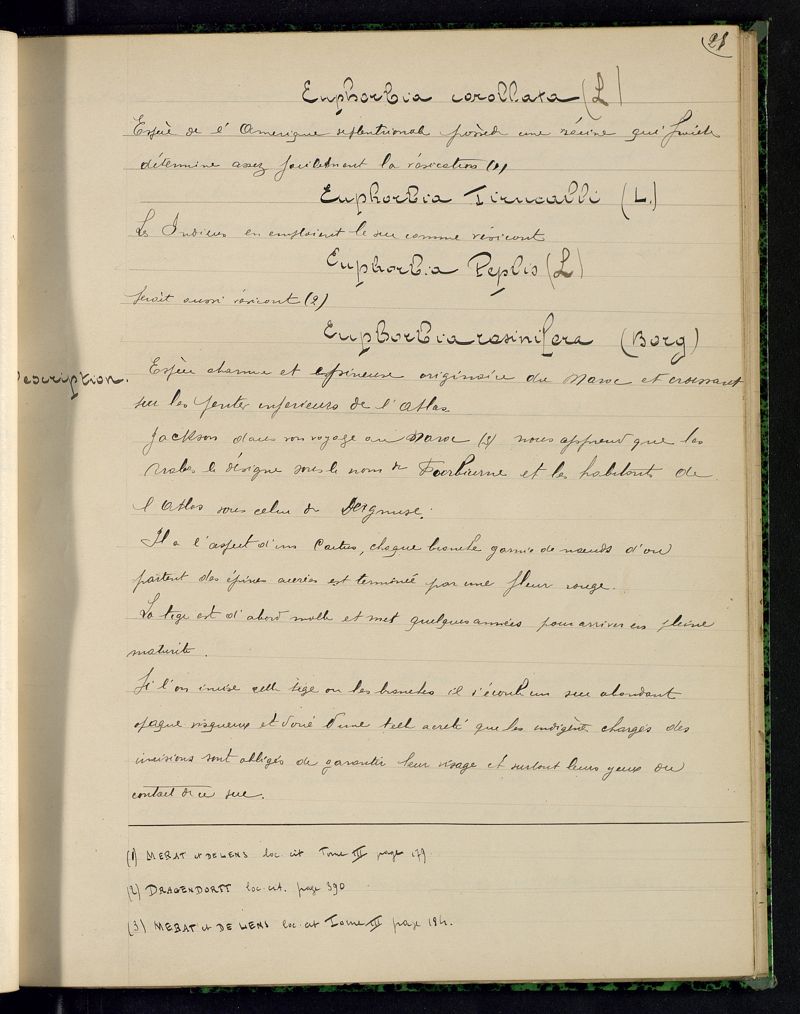 21
Euphorbia corollata (L)
Espèce de l'Amerique septentrional possède une résine qui
détermine assez facilement la vésication (1)
Euphorbia Tirucalli (L.)
Les Indiens en emploient le suc comme vésicant
Euphorbia Peplis (L)
serait aussi vésicant (2)
Euphorbia resinifera (Berg)
Description.
Espèce charnue et épineuse originaire du Maroc et croissant
sur les pentes inferieurs de l'Atlas
Jackson dans son voyage au Maroc (3) nous apprend que les
Arabes le désigne sous le nom de et les habitants de
l'Atlas sous celui de Dergmuse.
Il a l'aspect d'un Cactus, chaque branche garnie de nœuds d'ou
partent des épines acerées est terminée par une fleur rouge.
La tige est d'abord molle et met quelques années pour arriver en pleine
maturité.
Si l'on incise cette tige ou les branches il s'écoule un suc abondant
opaque visqueux et doué d'une tell acreté que les indigène chargés des
incisions sont obligés de garantir leur visage et surtout leurs yeux du
contact de ce suc.
(1) MERAT et DE LENS loc cit Tome III page 179
(2) DRAGENDORFF loc. cit. page 390
(3) MERAT et DE LENS loc cit Tome III page 184.